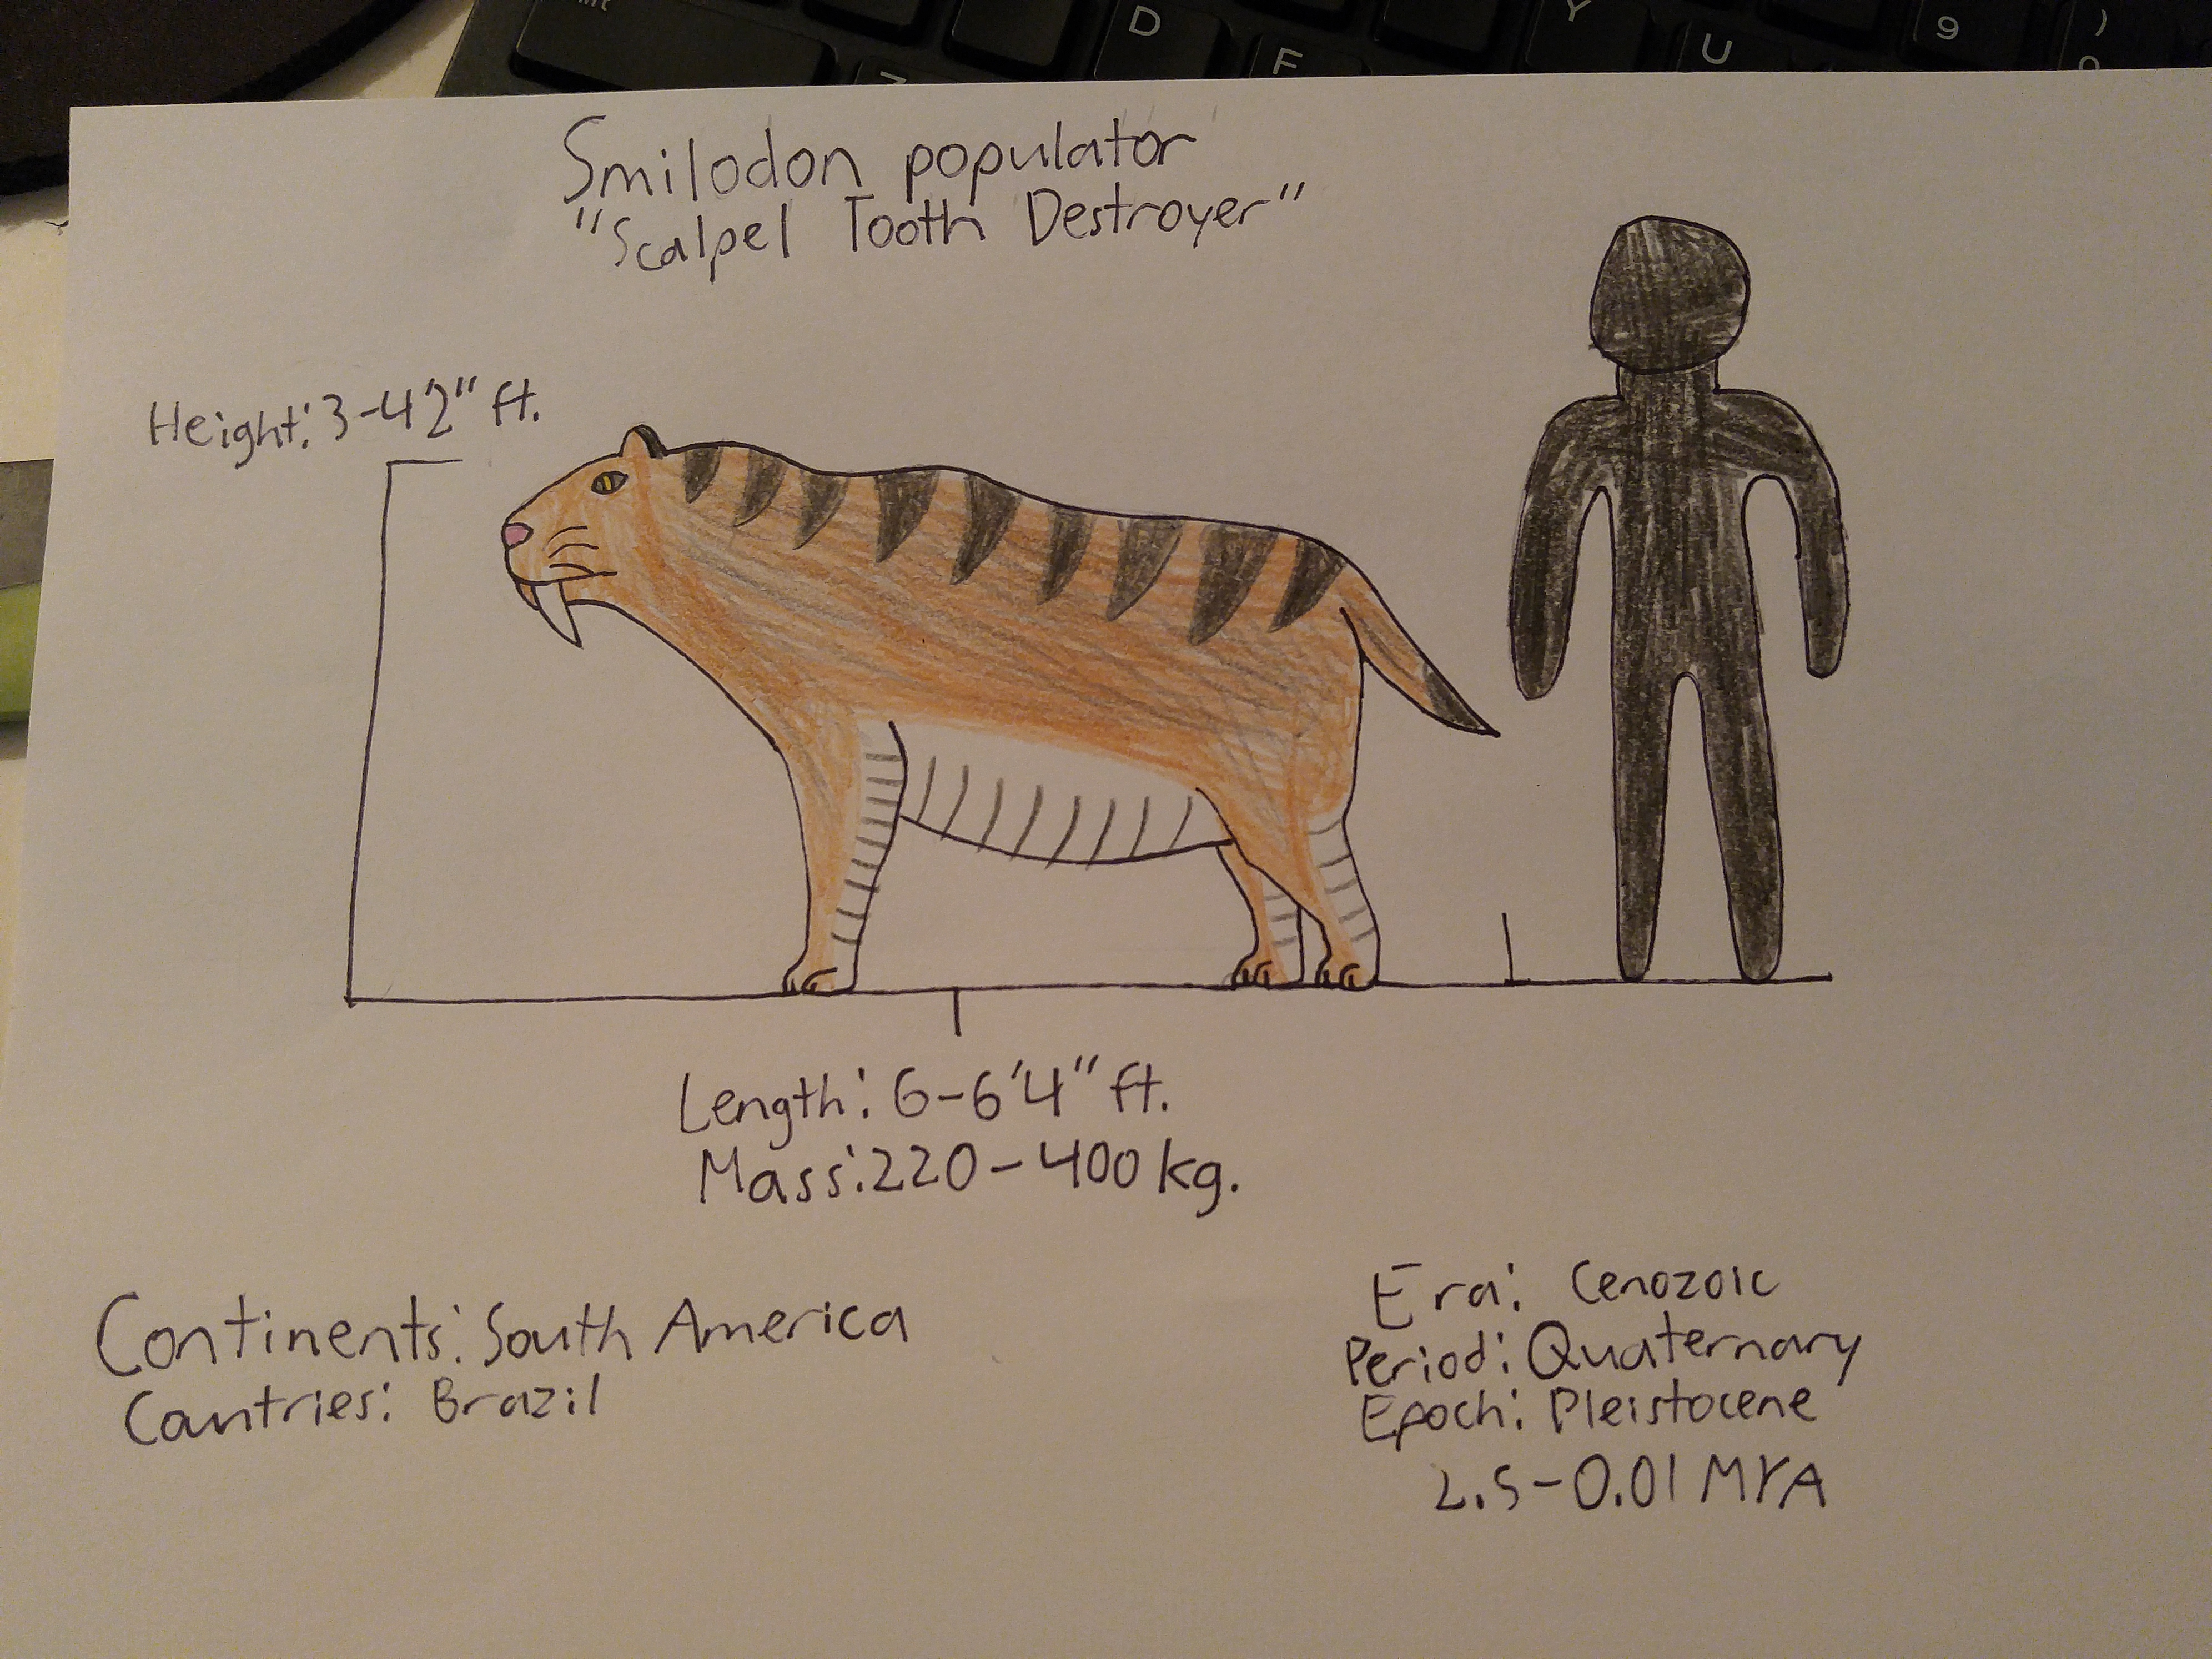 D
F
Y
U
9
)
Smilodon populator
"Scalpel Tooth Destroyer"
Height: 3-4'2" ft.
Length: 6-6'4" ft.
Mass: 220-400 kg.
Continents: South America
Countries: Brazil
Era: Cenozoic
Period: Quaternary
Epoch: Pleistocene
2.5-0.01 MYA